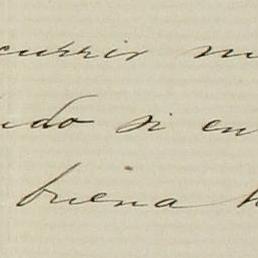 currir
udo si en
buena